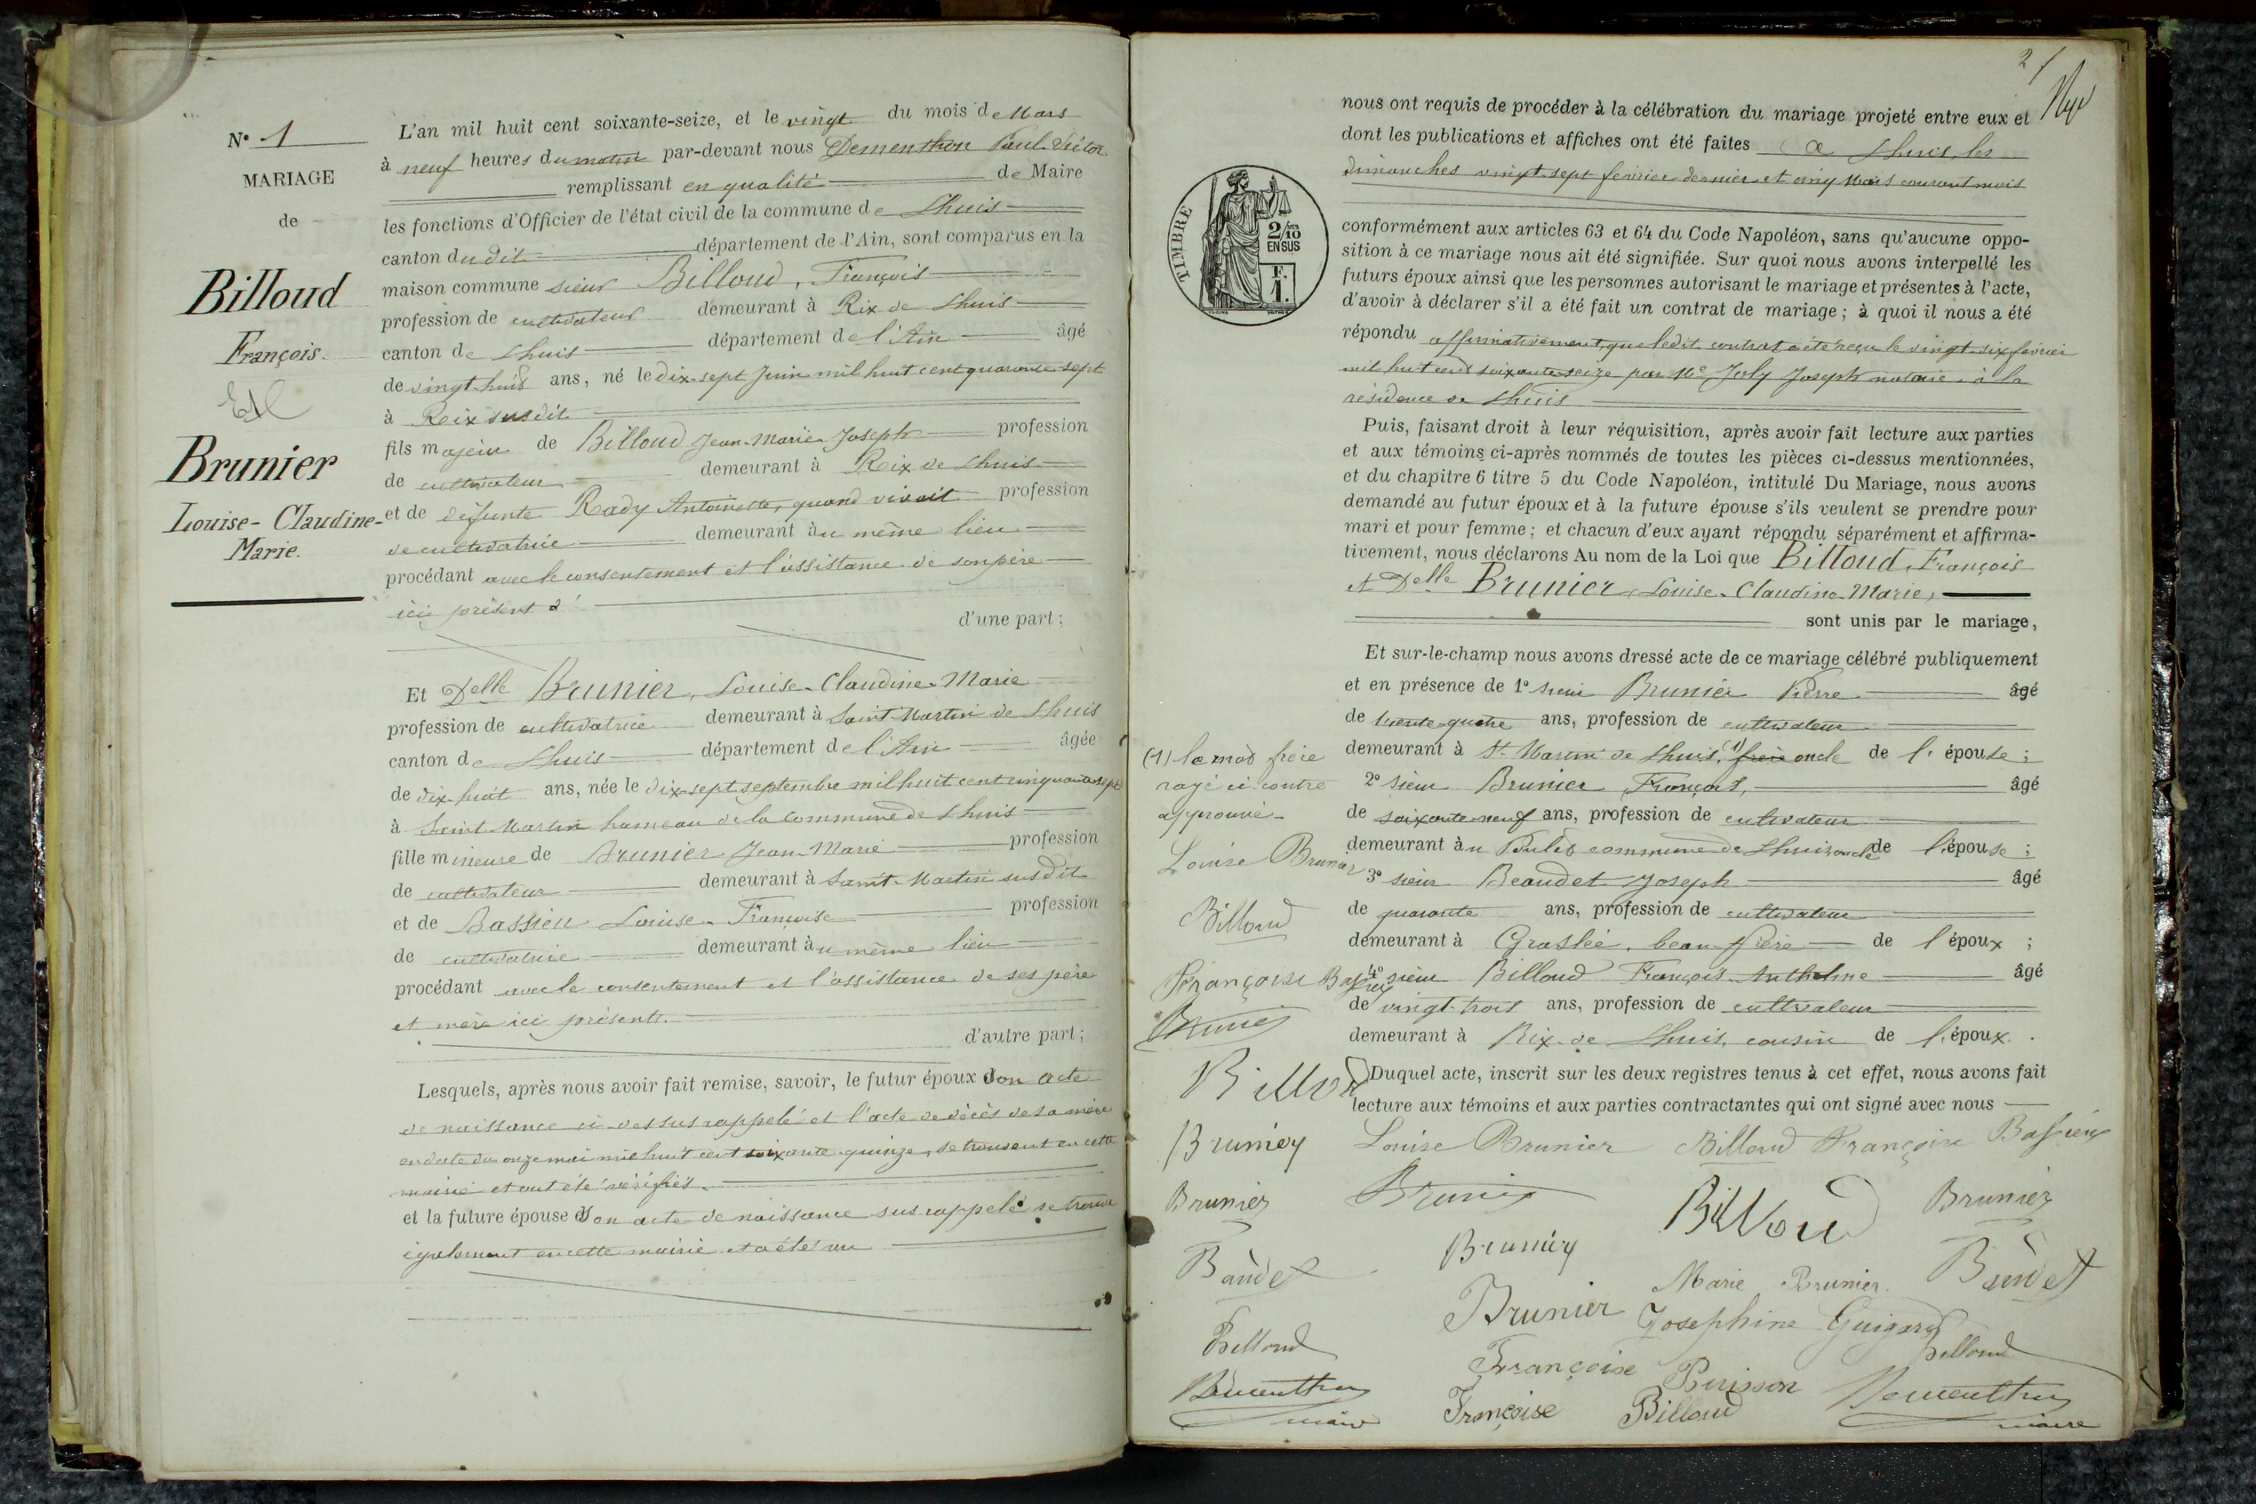 N° 1
MARIAGE
de
Billoud
François.
Et
Brunier
Louise-Claudine-
Marie.
L'an mil huit cent soixante-seize, et le vingt du mois de Mars
à neuf heures du matin par-devant nous Dementhon Paul-Victor
remplissant en qualité de Maire
les fonctions d'Officier de l'état civil de la commune de Lhuis
canton dudit département de l'Ain, sont comparus en la
maison commune sieur Billoud, François
profession de cultivateur demeurant à Rix de Lhuis
canton de Lhuis département de l'Ain âgé
de vingt huit ans, né le dix-sept Juin mil huit cent quarante-sept
à Rix susdit
fils majeur de Billoud Jean-Marie-Joseph profession
de cultivateur demeurant à Rix de Lhuis
et de défunte Rady Antoinette, quand vivait profession
de cultivatrice demeurant au même lieu
procédant avec le consentement et l'assistance de son père
ici présent
d'une part;
Et Delle Brunier, Louise-Claudine-Marie
profession de cultivatrice demeurant à Saint-Martin de Lhuis
canton de Lhuis département de l'Ain âgée
de dix-huit ans, née le dix-sept septembre mil huit cent cinquante-sept
à Saint Martin hameau de la commune de Lhuis
fille mineure de Brunier Jean-Marie profession
de cultivateur demeurant à Saint-Martin susdit
et de Bassieu Louise-Françoise profession
de cultivatrice demeurant au même lieu
procédant avec le consentement et l'assistance de ses père
et mère ici présents.
d'autre part;
Lesquels, après nous avoir fait remise, savoir, le futur époux Son acte
de naissance ci-dessus rappelé et l'acte de décès de sa mère
en date du onze mai mil huit cent soixante-quinze, se trouvent en cette
mairie et ont été vérifiés.
et la future épouse Son acte de naissance sus rappelé se trouve
également en cette mairie et a été vu
2
nous ont requis de procéder à la célébration du mariage projeté entre eux et
dont les publications et affiches ont été faites à Lhuis, les
dimanches vingt-sept février dernier et cinq Mars courant mois
TIMBRE
2/10 EN SUS
F. 1.
conformément aux articles 63 et 64 du Code Napoléon, sans qu'aucune oppo-
sition à ce mariage nous ait été signifiée. Sur quoi nous avons interpellé les
futurs époux ainsi que les personnes autorisant le mariage et présentes à l'acte,
d'avoir à déclarer s'il a été fait un contrat de mariage; à quoi il nous a été
répondu affirmativement, que ledit contrat a été reçu le vingt-six février
mil huit cent soixante-seize par Me Joly Joseph notaire à la
résidence de Lhuis
Puis, faisant droit à leur réquisition, après avoir fait lecture aux parties
et aux témoins ci-après nommés de toutes les pièces ci-dessus mentionnées,
et du chapitre 6 titre 5 du Code Napoléon, intitulé Du Mariage, nous avons
demandé au futur époux et à la future épouse s'ils veulent se prendre pour
mari et pour femme; et chacun d'eux ayant répondu séparément et affirma-
tivement, nous déclarons Au nom de la Loi que Billoud, François
et Delle Brunier, Louise-Claudine-Marie,
sont unis par le mariage,
Et sur-le-champ nous avons dressé acte de ce mariage célébré publiquement
et en présence de 1° sieur Brunier Pierre âgé
de trente-quatre ans, profession de cultivateur
demeurant à St-Martin de Lhuis, (1) frère oncle de l'épouse;
2° sieur Brunier François, âgé
de soixante-neuf ans, profession de cultivateur
demeurant au commune de Lhuis, oncle de l'épouse;
3° sieur Beaudet Joseph âgé
de quarante ans, profession de cultivateur
demeurant à Groslée, beau-frère de l'époux;
4° sieur Billoud François-Anthelme âgé
de vingt-trois ans, profession de cultivateur
demeurant à Rix de Lhuis, cousin de l'époux.
Duquel acte, inscrit sur les deux registres tenus à cet effet, nous avons fait
lecture aux témoins et aux parties contractantes qui ont signé avec nous
(1) le mot frère
rayé ci contre
approuvé.
Louise Brunier
Billoud
Françoise Bassieux
Brunier
Billoud
Brunier
Brunier
Baudet
Billoud
Dementhon
maire
Louise Brunier Billoud Françoise Bassieux
Brunier Billoud Brunier
Brunier Marie Brunier Baudet
Brunier Josephine Guigard
Françoise Buisson Billoud
Françoise Billoud Dementhon
maire